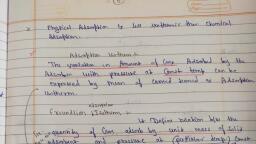 Physical Adsorption is less exothermic than Chemical
Adsorption.
Adsorption Isotherm :-
The variation in Amount of Gas Adsorbed by the
Adsorbent with pressure at Const temp can be
expressed by mean of curved termed as Adsorption
Isotherm
adsorption
Freundlich Isotherm :-
It Define relation b/w the
quantity of Gas adsorb by unit mass of Solid
adsorbent and pressure at (particular temp) Const